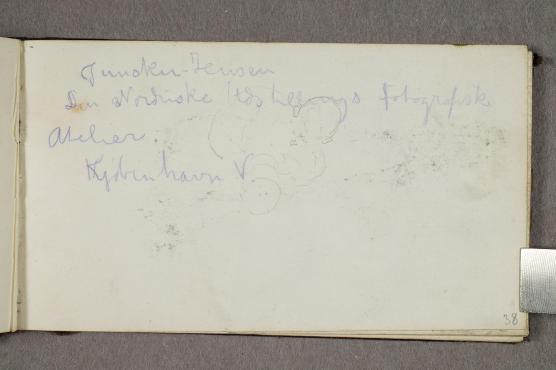 Juncker-Jensen
Den Nordiske Udstillings fotografiske
Atelier.
Kjøbenhavn V.
38